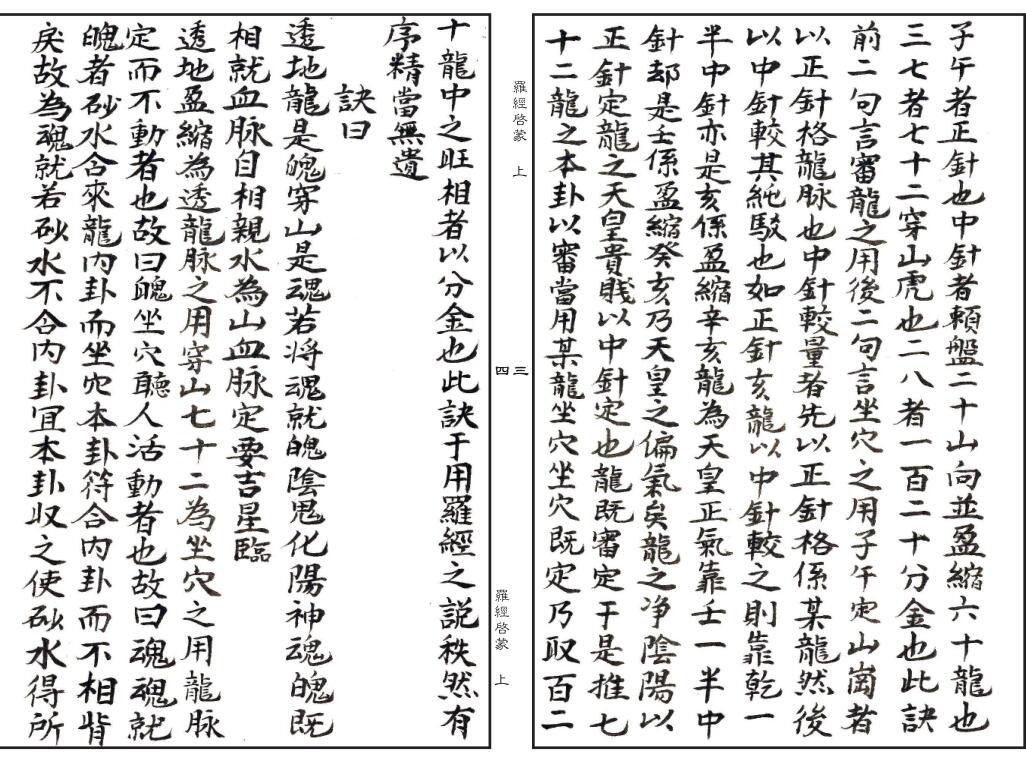 子午者正針也中針者頼盤二十山向並盈縮六十龍也
三七者七十二穿山虎也二八者一百二十分金也此訣
前二句言審龍之用後二句言坐穴之用子午定山崗者
以正針格龍脉也中針較量者先以正針格係某龍然後
以中針較其純駁也如正針亥龍以中針較之則靠乾一
半中針亦是亥係盈縮辛亥龍為天皇正氣靠壬一半中
針却是壬係盈縮癸亥乃天皇之偏氣矣龍之净陰陽以
正針定龍之天皇貴賤以中針定也龍既審定于是推七
十二龍之本卦以審當用某龍坐穴坐穴既定乃取百二
羅經啓蒙 上
三
四
羅經啓蒙 上
十龍中之旺相者以分金也此訣于用羅經之説秩然有
序精當無遺
訣曰
透地龍是魄穿山是魂若将魂就魄陰鬼化陽神魂魄既
相就血脉自相親水為山血脉定要吉星臨
透地盈縮為透龍脉之用穿山七十二為坐穴之用龍脉
定而不動者也故曰魄坐穴聽人活動者也故曰魂魂就
魄者砂水合來龍内卦而坐穴本卦符合内卦而不相背
戾故為魂就若砂水不合内卦宜本卦収之使砂水得所